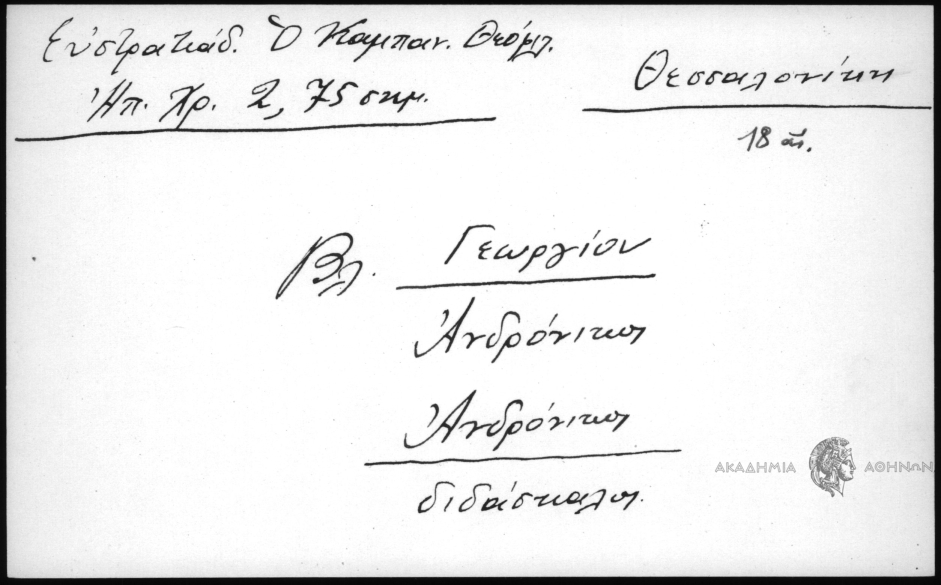 Εὐστρατιάδ. Ὁ Καμπαν. Θεόφιλ.
Ἠπ. Χρ. 2, 75 σημ.
Θεσσαλονίκη
18 αἰ.
Βλ. Γεωργίου
Ἀνδρόνικος
Ἀνδρόνικος
διδάσκαλος.
ΑΚΑΔΗΜΙΑ ΑΘΗΝΩΝ